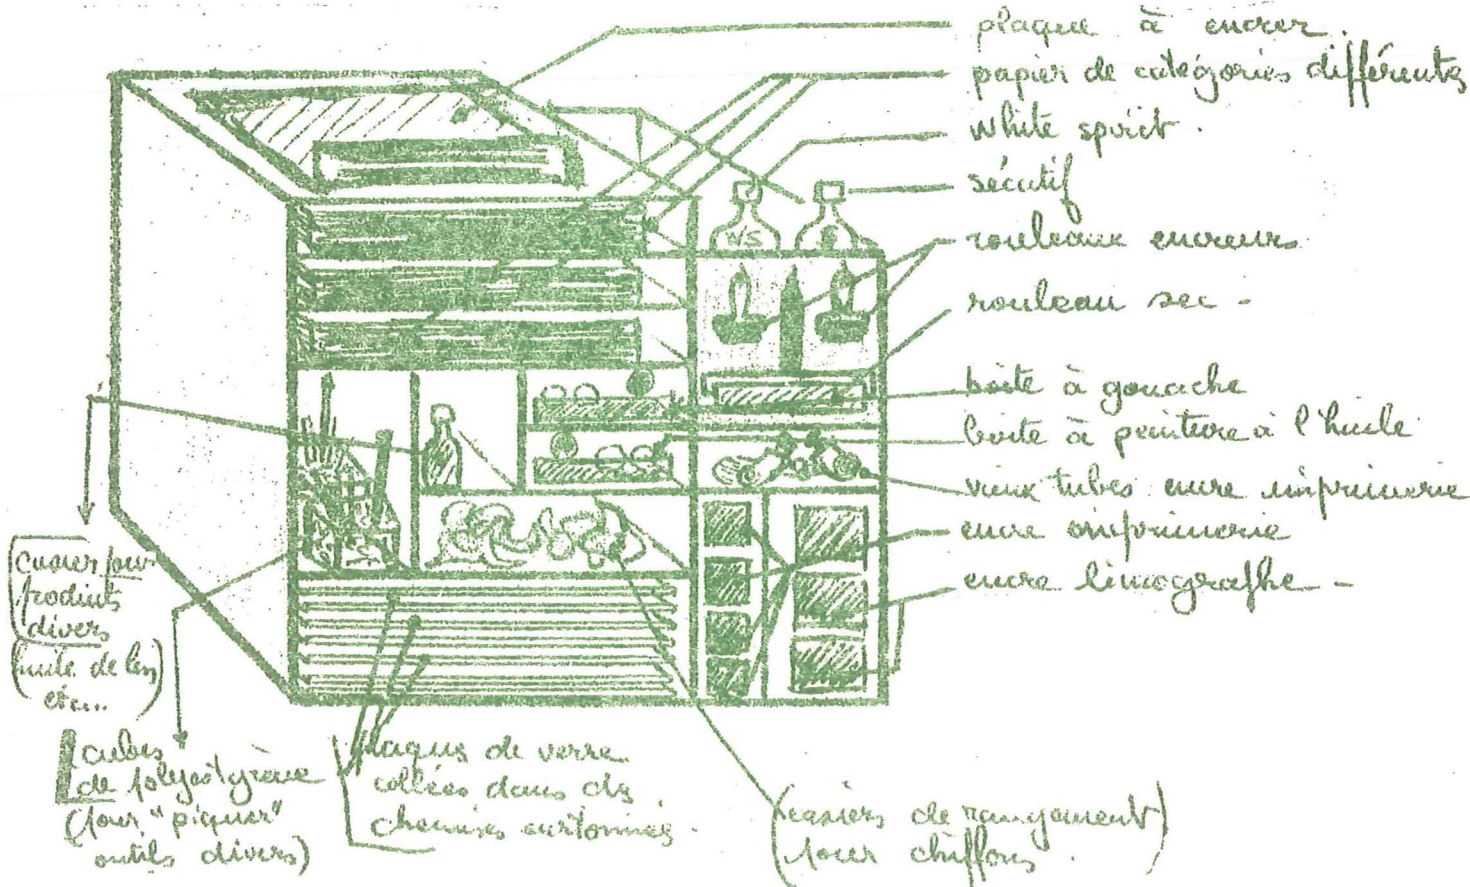 plaque à encrer.
papier de catégories différentes
white spirit.
sécatif
rouleaux encreurs
rouleau sec -
boîte à gouache
boîte à peinture à l'huile
vieux tubes encre imprimerie
encre imprimerie
encre limographe -
WS
casier pour
produits
divers
(huile de lin)
etc...
cubes
de polystyrène
(pour "piquer"
outils divers)
plaques de verre
collées dans des
chemises cartonnées.
(casiers de rangement)
(pour chiffons.